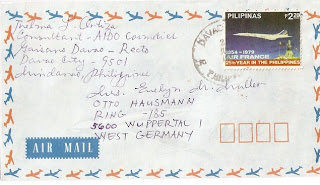 Thelma J. Cortiza
Consultant - AIDO Cosmetics
Gaisano Davao - Recto
Davao City - 9501
Mindanao, Philippine
PILIPINAS
₱2.20
1954-1979
AIR FRANCE
25th YEAR IN THE PHILIPPINES
DAVAO
PHILIPPINES
Mrs. Evelyn M. Müller
OTTO HAUSMANN
RING -185
5600 WUPPERTAL 1
WEST GERMANY
AIR MAIL